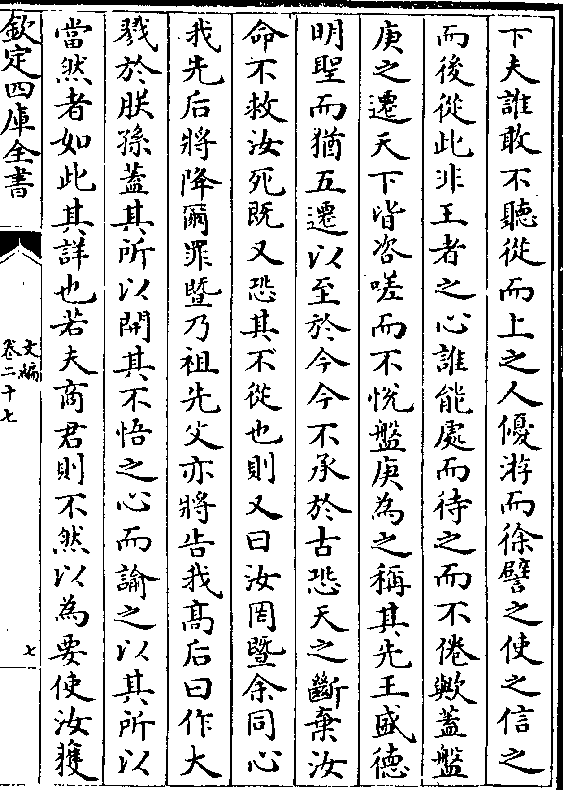 下夫誰敢不聽從而上之人優游而徐譬之使之信之
而後從此非王者之心誰能處而待之而不倦歟蓋盤
庚之遷天下皆咨嗟而不悅盤庚為之稱其先王盛德
明聖而猶五遷以至於今今不承於古恐天之斷棄汝
命不救汝死既又恐其不從也則又曰汝罔暨余同心
我先后將降爾罪暨乃祖先父亦將告我高后曰作大
戮於朕孫蓋其所以開其不悟之心而諭之以其所以
當然者如此其詳也若夫商君則不然以為要使汝獲
欽定四庫全書
文編
卷二十七
七